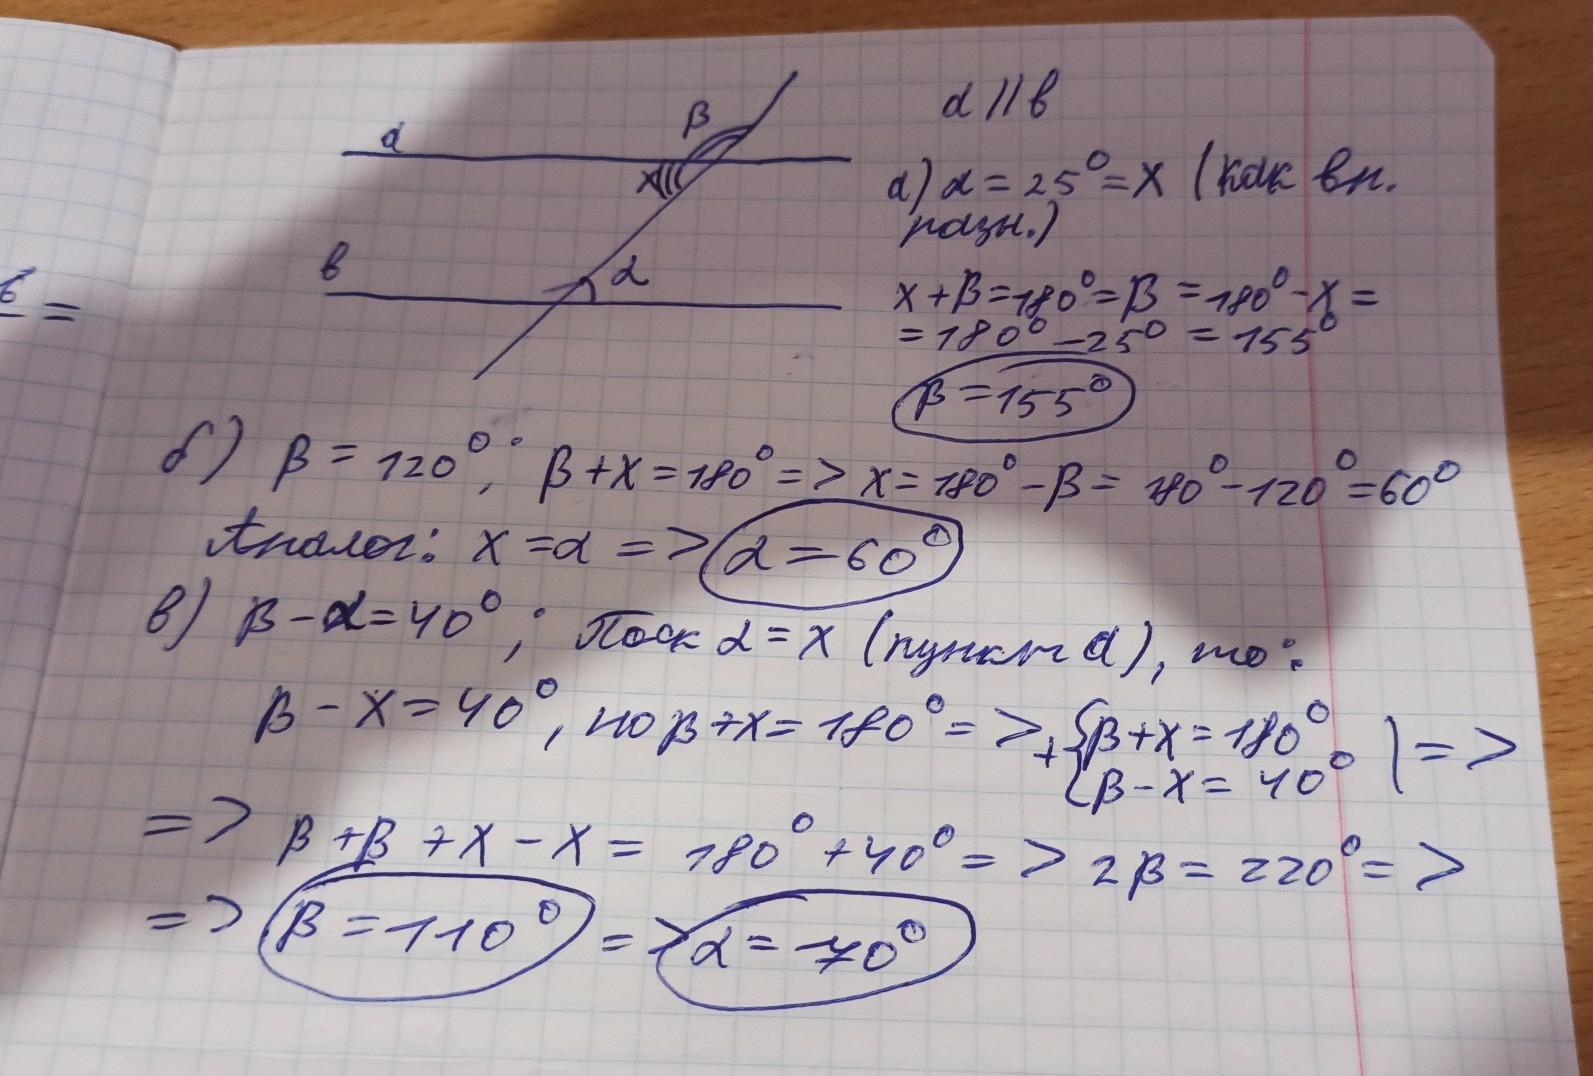 a
β
x
в
α
a || в
а) α = 25° = x (как вн.
разн.)
x + β = 180° = β = 180° - x =
= 180° - 25° = 155°
β = 155°
б =
б) β = 120°; β + x = 180° => x = 180° - β = 180° - 120° = 60°
Аналог: x = α => α = 60°
в) β - α = 40°; Поск α = x (пункт а), то:
β - x = 40°, но β + x = 180° => + { β + x = 180° | =>
β - x = 40°
=> β + β + x - x = 180° + 40° => 2β = 220° =>
=> β = 110° => α = 70°